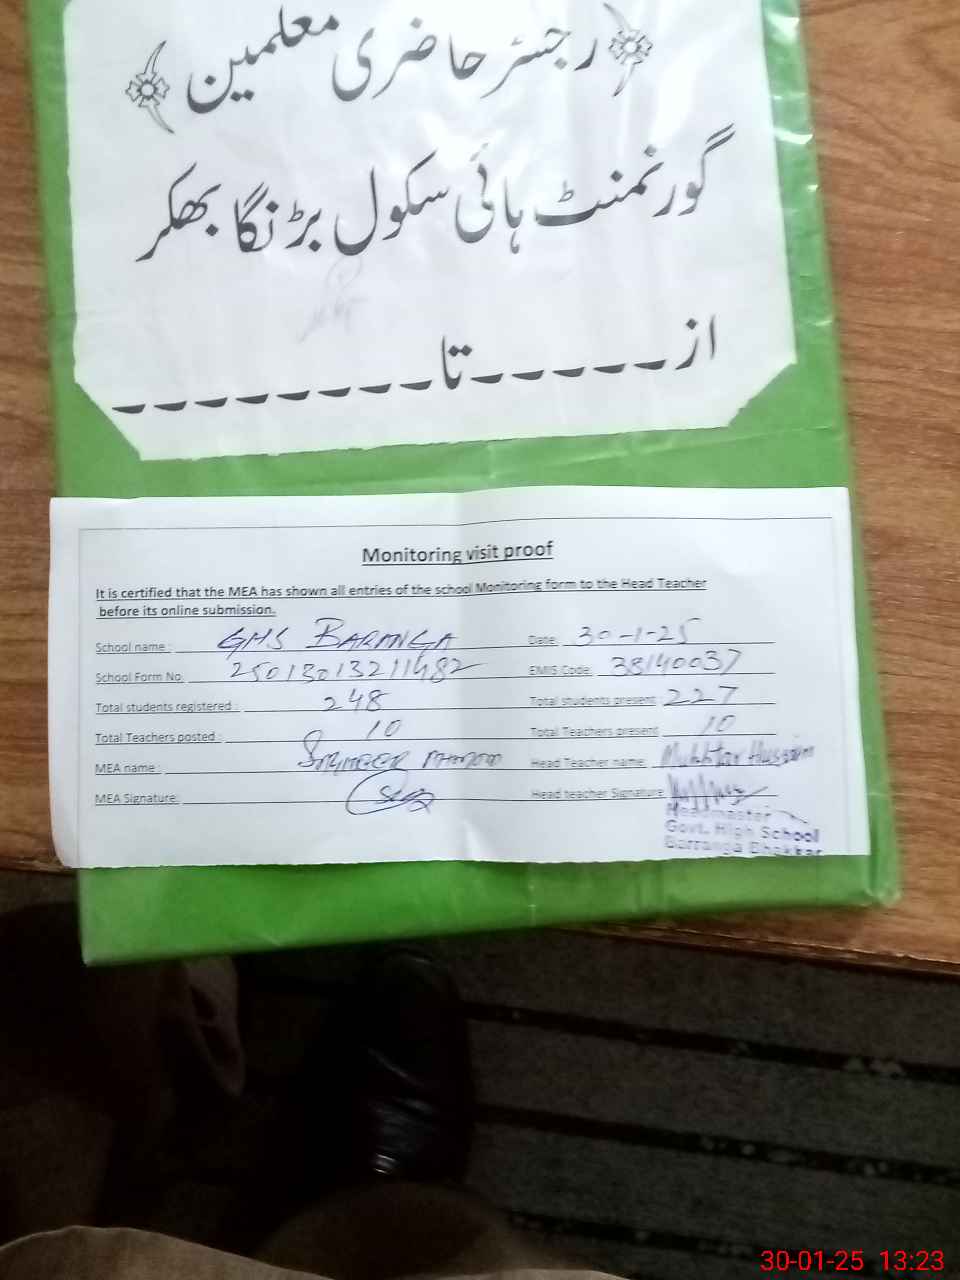 رجسٹر حاضری معلمین
گورنمنٹ ہائی سکول بڑنگا بھکر
از-----تا--------
Monitoring visit proof
It is certified that the MEA has shown all entries of the school Monitoring form to the Head Teacher
before its online submission.
School name : GHS BARANGA Date: 30-1-25
School Form No. 25013013211482 EMIS Code: 38140037
Total students registered : 248 Total students present: 227
Total Teachers posted : 10 Total Teachers present 10
MEA name : Head Teacher name: Mukhtar Hussain
MEA Signature: Head teacher Signature
Headmaster
Govt. High School
Barranga Bhakkar
30-01-25 13:23